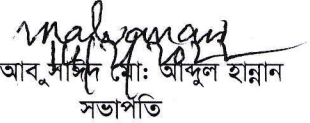 আবু সাঈদ মো: আব্দুল হান্নান
সভাপতি